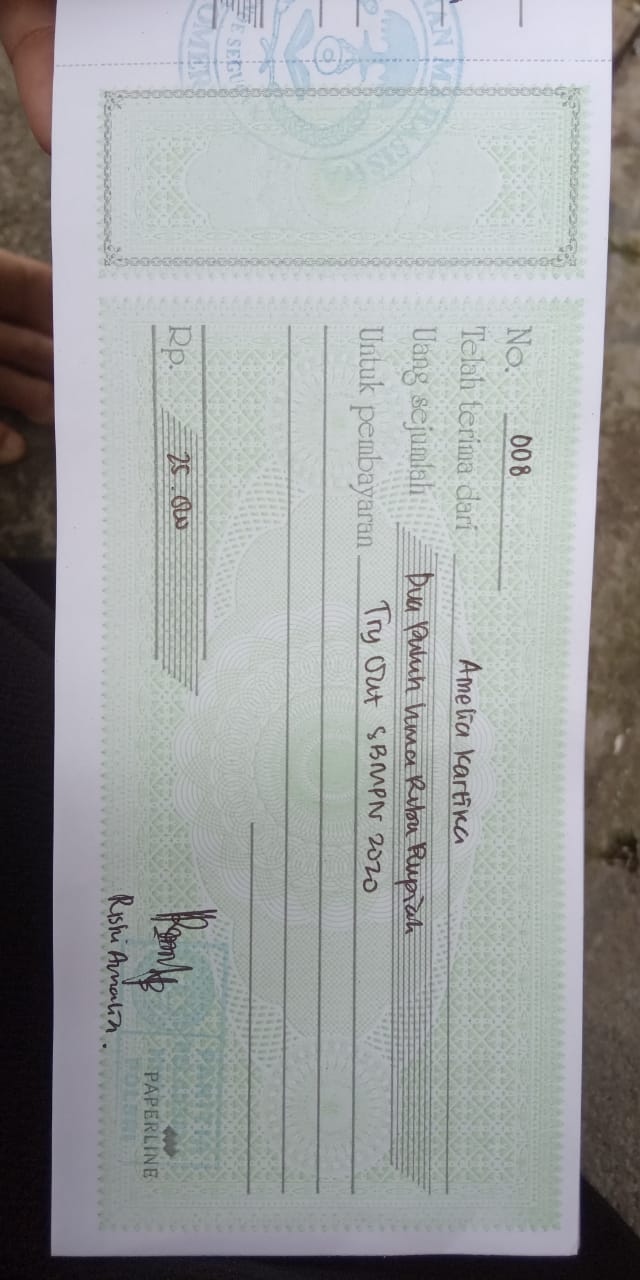 No. 008
Telah terima dari Amelia Kartika
Uang sejumlah Dua Puluh Lima Ribu Rupiah
Untuk pembayaran Try Out SBMPN 2020
Rp. 25.000
Rishi Amalia.
PAPERLINE